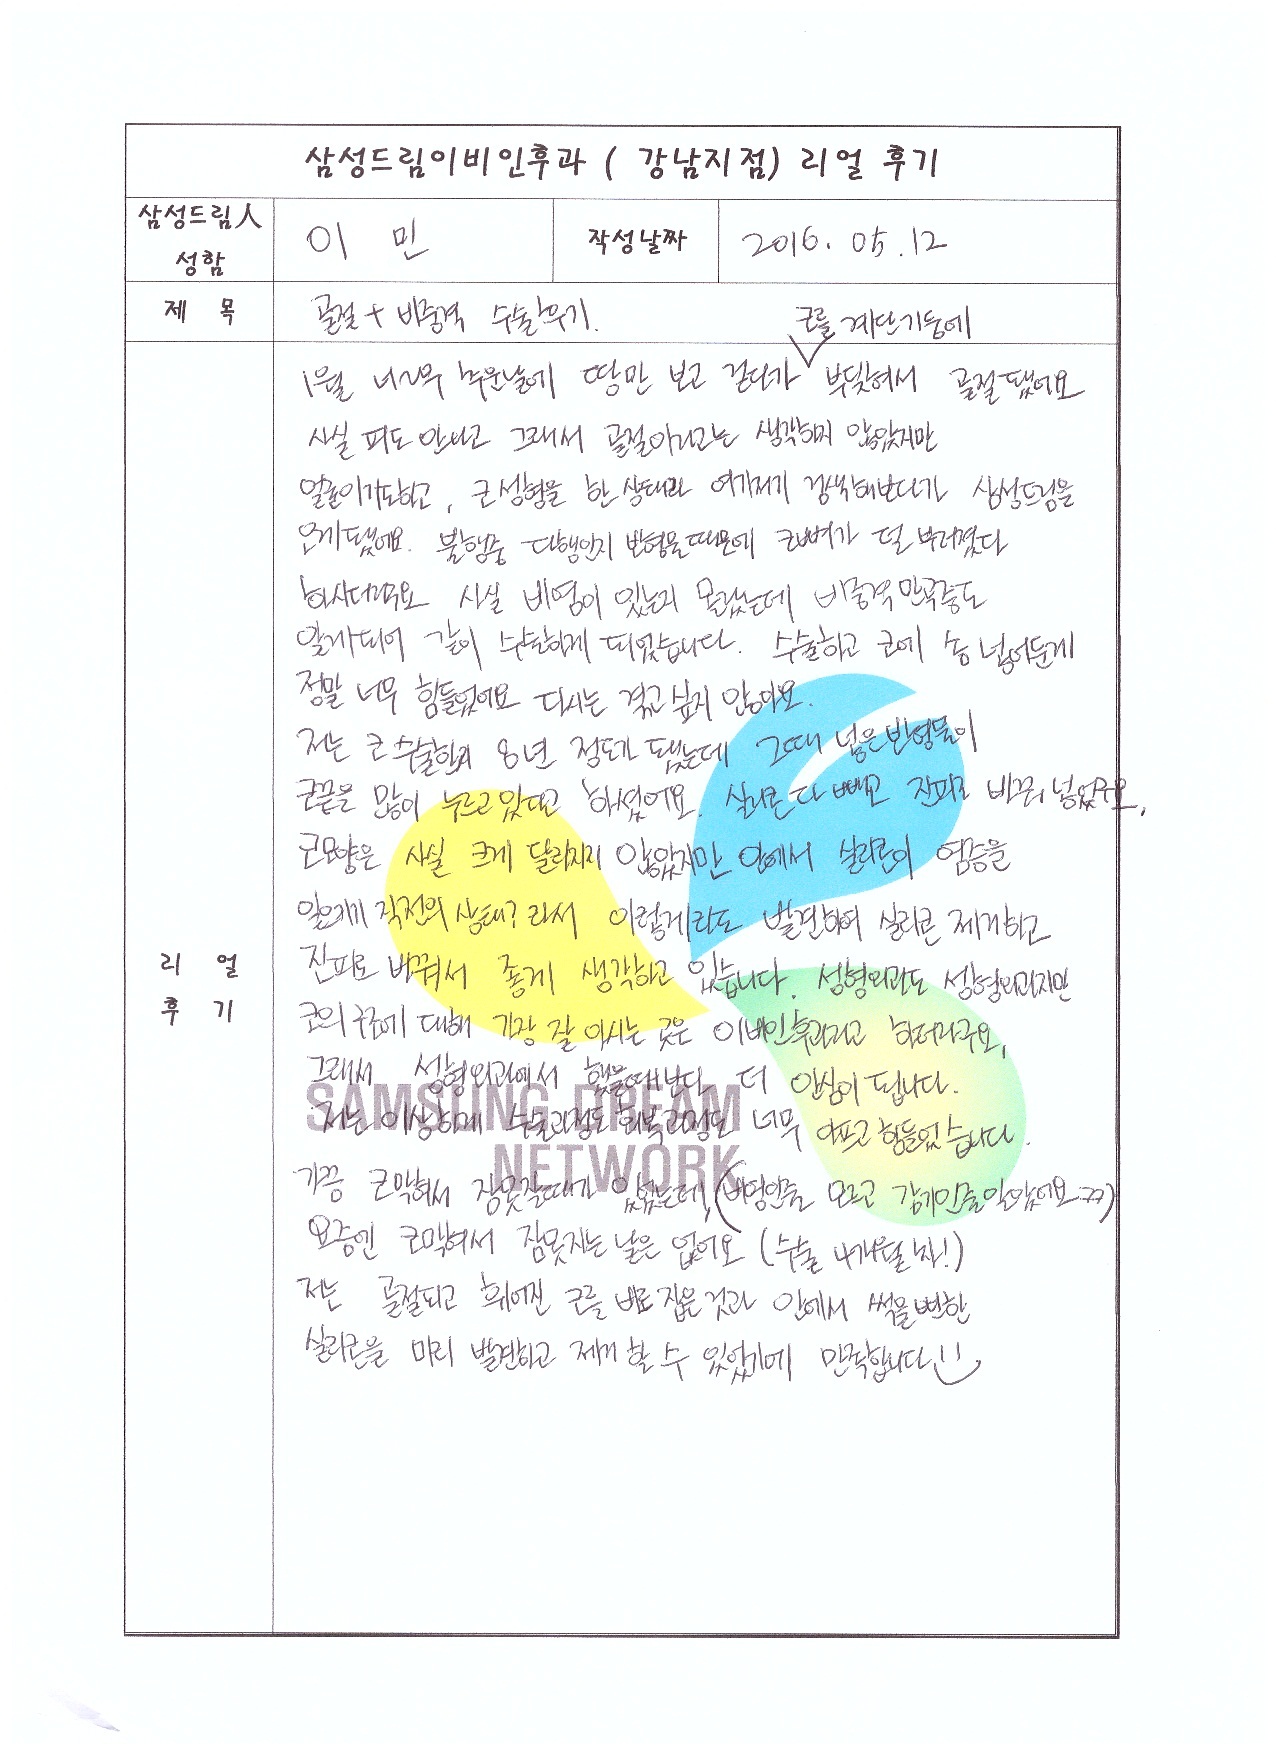 삼성드림이비인후과 ( 강남지점) 리얼 후기
삼성드림人 성함
이 민
작성날짜
2016. 05. 12
제 목
골절 + 비중격 수술후기.
코를 계단기둥에
1월 너~무 추운날에 땅만 보고 걷다가 부딪혀서 골절됐어요
사실 피도 안나고 그래서 골절이라고는 생각하지 않았지만
얼굴이기도하고, 코 성형을 한 상태라 여기저기 검색해보다가 삼성드림을
오게됐어요. 불행중 다행인지 보형물때문에 코뼈가 덜 부러졌다
하시더라구요 사실 비염이 있는지 몰랐는데 비중격 만곡증도
알게되어 같이 수술하게 되었습니다. 수술하고 코에 솜 넣어둔게
정말 너무 힘들었어요 다시는 겪고 싶지 않아요.
저는 코 수술한지 8년 정도가 됐는데 그때 넣은 보형물이
코끝을 많이 누르고있다고 하셨어요. 실리콘 다 빼고 진피로 바꿔 넣었구요,
코모양은 사실 크게 달라지지 않았지만 안에서 실리콘이 염증을
일으키기 직전의 상태? 라서 이렇게라도 발견하여 실리콘 제거하고
진피로 바꿔서 좋게 생각하고 있습니다. 성형외과도 성형외과지만
코의 구조에 대해 가장 잘 아시는 곳은 이비인후과라고 하더라구요,
그래서 성형외과에서 했을때보다 더 안심이 됩니다.
저는 이상하게 수술과정도 회복과정도 너무 아프고 힘들었습니다.
가끔 코막혀서 잠못잘때가 있었는데, (비염인줄 모르고 감기인줄알았어요ㅠㅠ)
요즘엔 코막혀서 잠못자는 날은 없어요 (수술 4개월 차!)
저는 골절되고 휘어진 코를 바로 잡은것과 안에서 썩을뻔한
실리콘을 미리 발견하고 제거 할 수 있었기에 만족합니다
리 얼
후 기
SAMSUNG DREAM
NETWORK